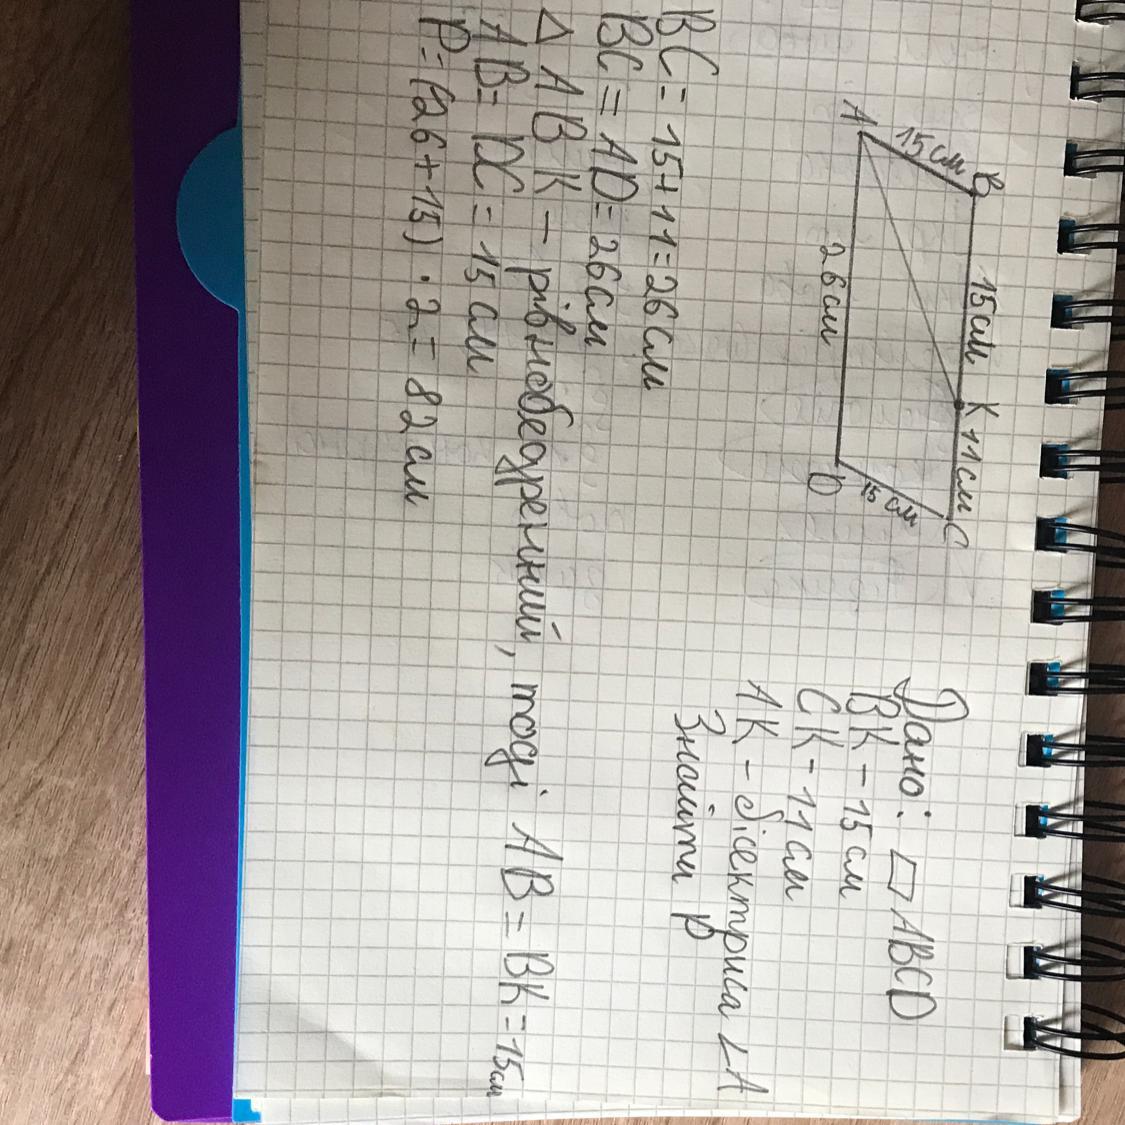 Дано: ▱ ABCD
BK - 15 см
CK - 11 см
AK - бісектриса ∠A
Знайти P
B 15см K 11см C
15 см
15 см
A 26 см D
BC = 15 + 11 = 26 см
BC = AD = 26 см
Δ ABK - рівнобедренний, тоді AB = BK = 15 см
AB = DC = 15 см
P = (26 + 15) · 2 = 82 см